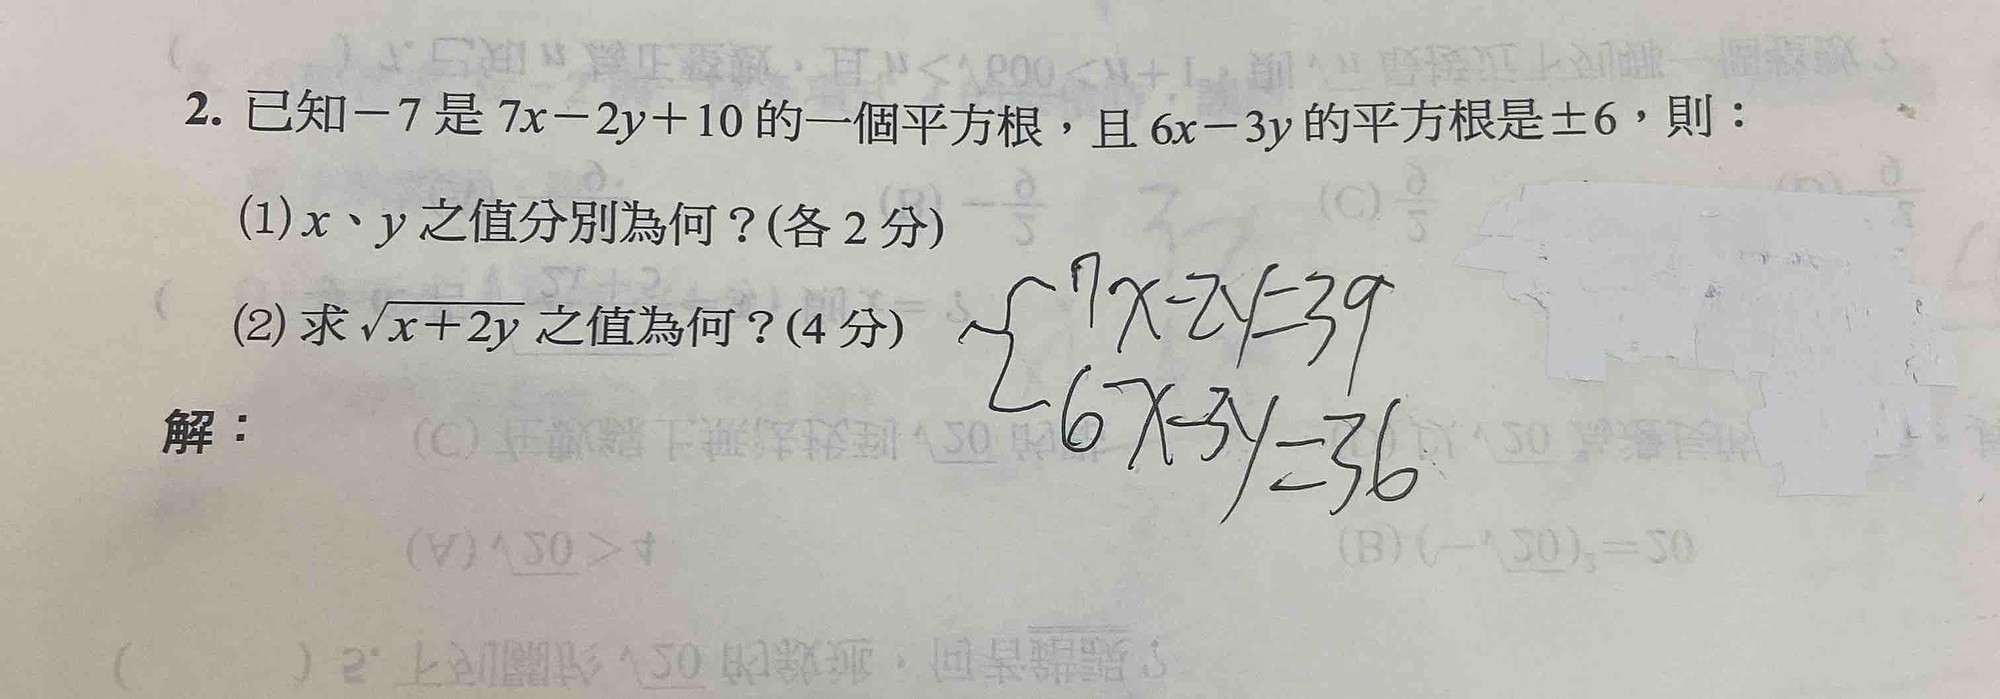 2. 已知－7 是 7x－2y＋10 的一個平方根，且 6x－3y 的平方根是±6，則：
(1) x、y 之值分別為何？(各 2 分)
(2) 求 √x＋2y 之值為何？(4 分)
7x-2y=39
6x-3y=36
解：